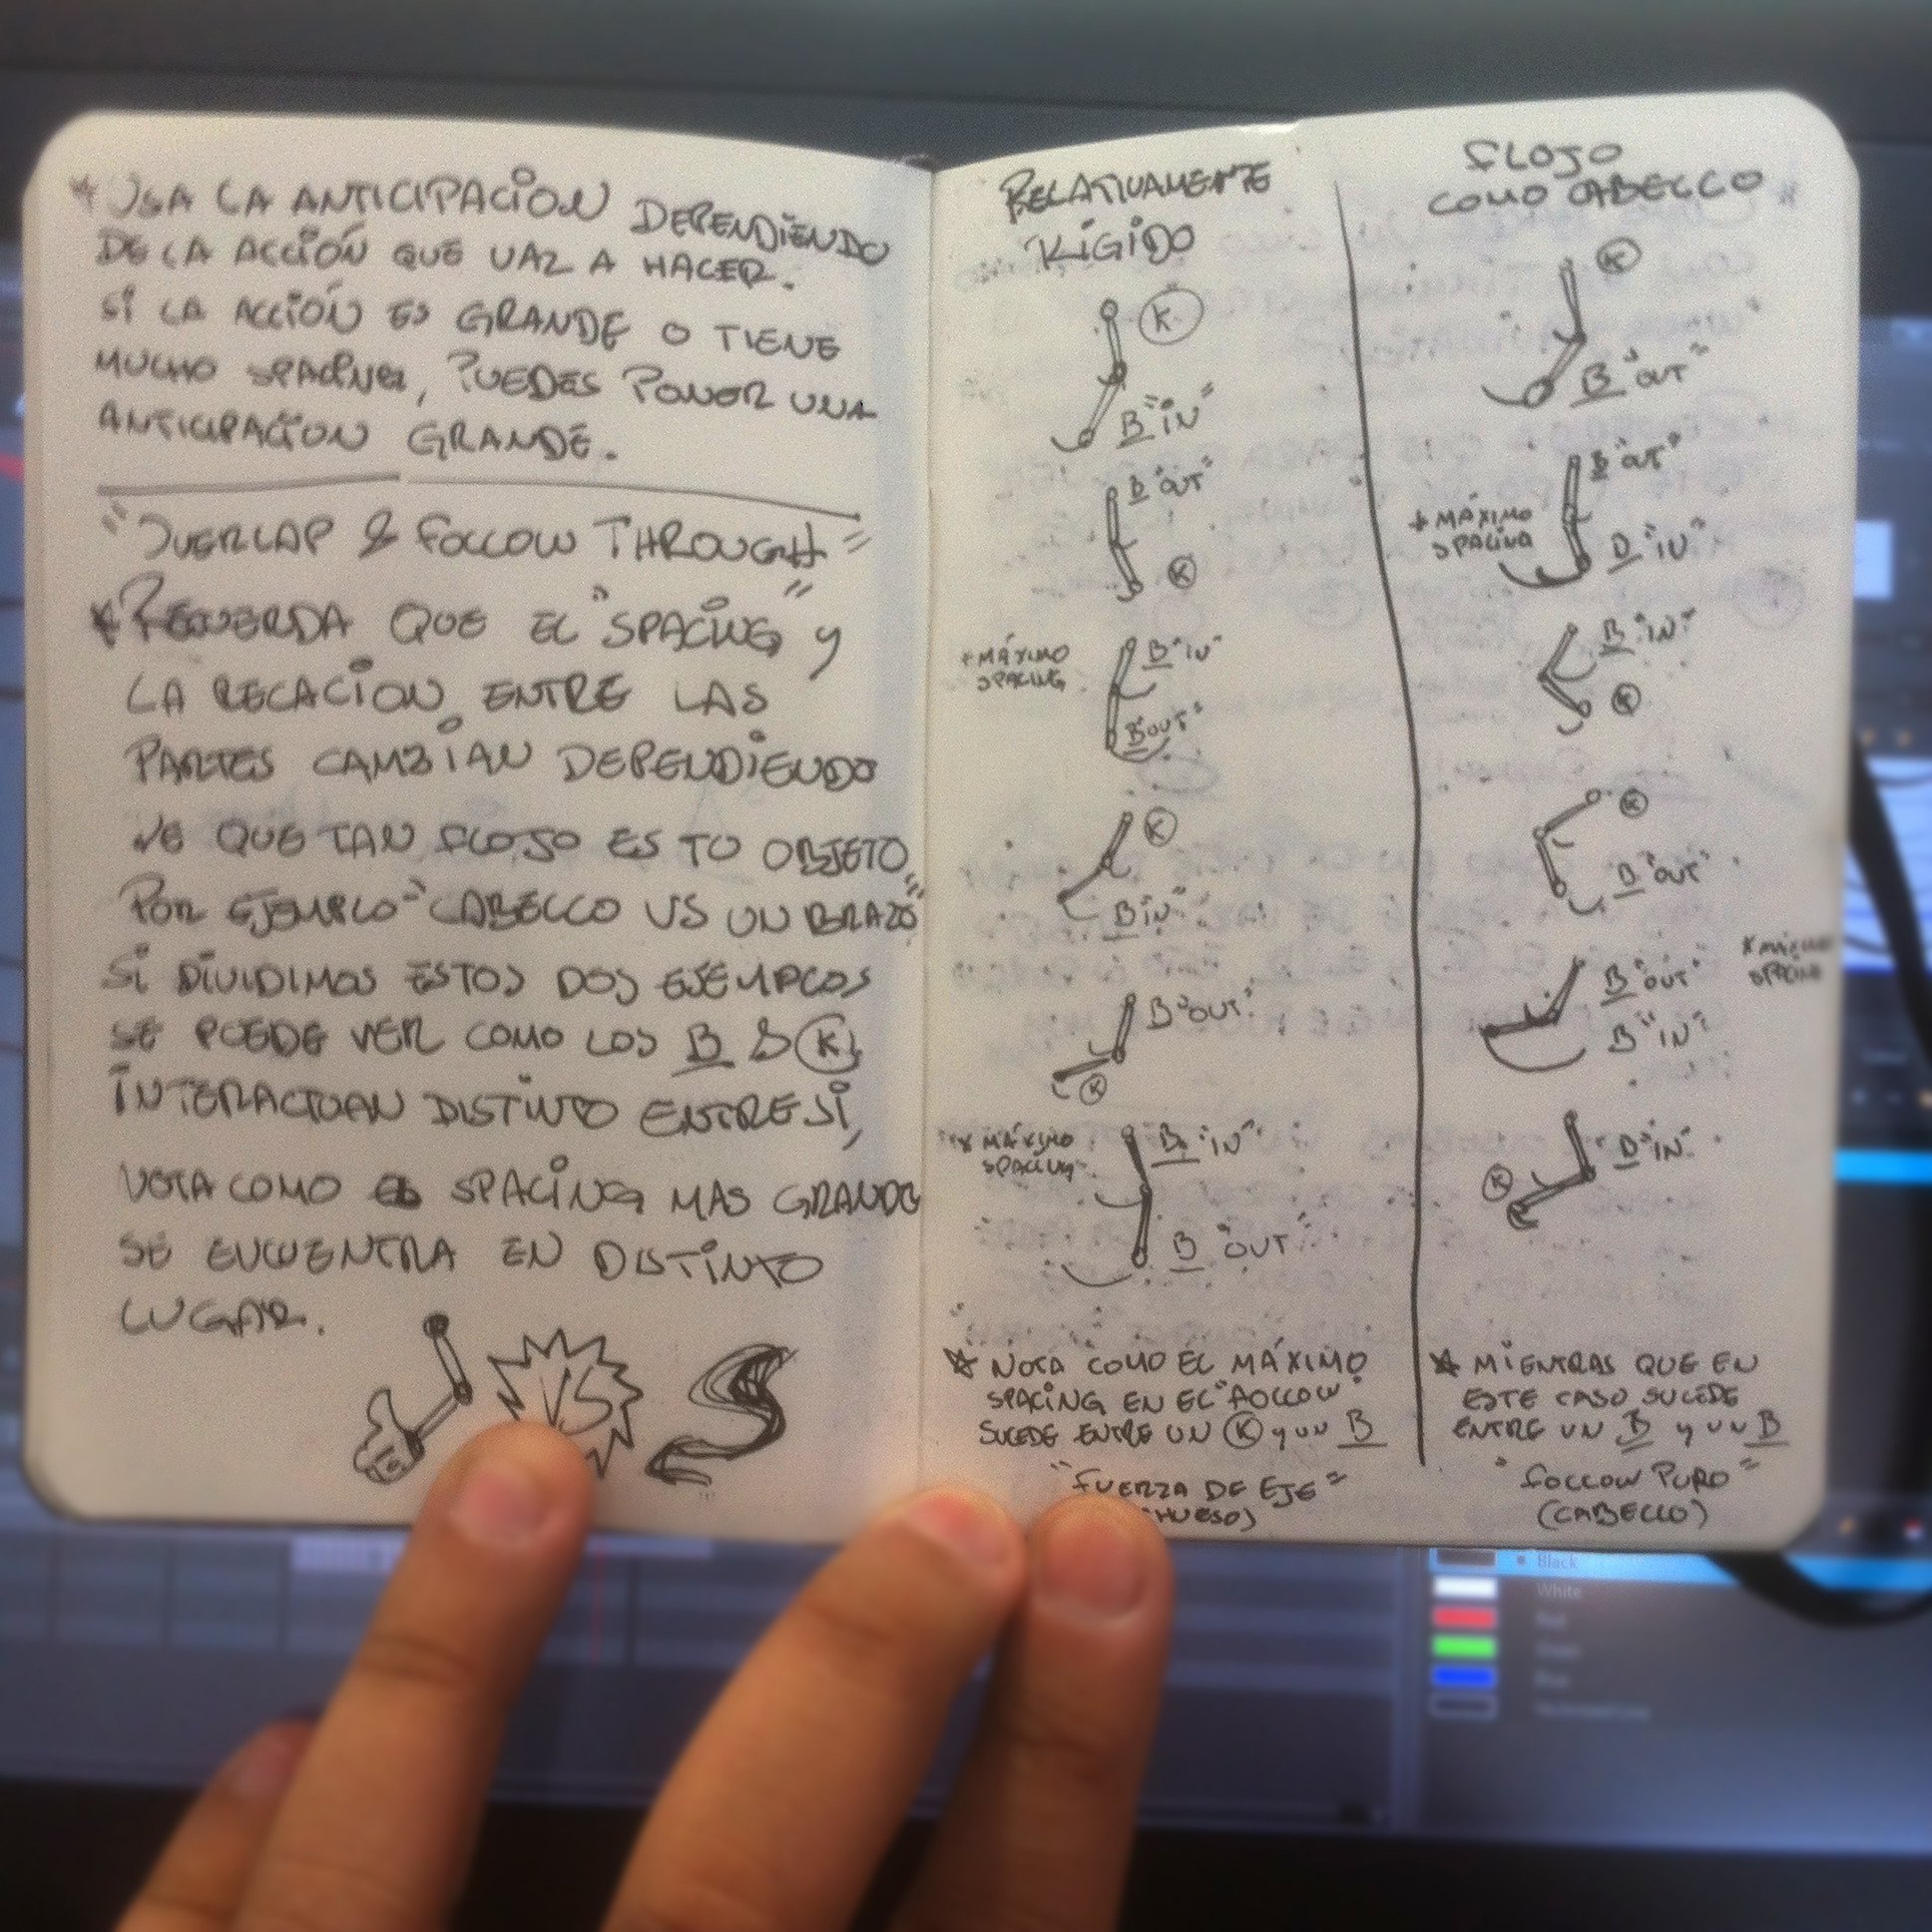 * USA LA ANTICIPACIÓN DEPENDIENDO
DE LA ACCIÓN QUE VAZ A HACER.
SI LA ACCIÓN ES GRANDE O TIENE
MUCHO SPACING, PUEDES PONER UNA
ANTICIPACIÓN GRANDE.
"OVERLAP & FOLLOW THROUGH"
* RECUERDA QUE EL "SPACING" Y
LA RELACION ENTRE LAS
PARTES CAMBIAN DEPENDIENDO
DE QUE TAN FLOJO ES TU OBJETO,
POR EJEMPLO "CABELLO VS UN BRAZO"
SI DIVIDIMOS ESTOS DOS EJEMPLOS
SE PUEDE VER COMO LOS B & K
INTERACTUAN DISTINTO ENTRE SI,
NOTA COMO EL SPACING MAS GRANDE
SE ENCUENTRA EN DISTINTO
LUGAR.
VS
RELATIVAMENTE
RÍGIDO
K
B "IN"
B "OUT"
K
* MÁXIMO
SPACING
B "IN"
B "OUT"
K
B "IN"
B "OUT"
K
* MÁXIMO
SPACING
B "IN"
B "OUT"
* NOTA COMO EL MÁXIMO
SPACING EN EL "FOLLOW"
SUCEDE ENTRE UN K Y UN B
"FUERZA DE EJE"
HUESO)
FLOJO
COMO CABELLO
K
B "OUT"
B "OUT"
* MÁXIMO
SPACING
B "IN"
B "IN"
K
K
B "OUT"
B "OUT"
B "IN"
* MÁXIMO
SPACING
B "IN"
K
* MIENTRAS QUE EN
ESTE CASO SUCEDE
ENTRE UN B Y UN B
"FOLLOW PURO"
(CABELLO)
Black
White
Red
Green
Blue